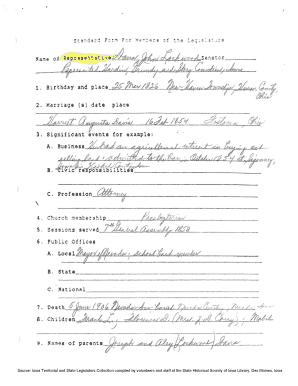 Standard Form For Members of the Legislature
Name of Representative Dana, John Lockwood Senator
Represented Hardin, Grundy and Story Counties, Iowa
1. Birthday and place 25 May 1826 New Haven Township, Huron County,
Ohio
2. Marriage (s) date place
Harriet Augusta Davis 16 Feb 1854 Ohio
3. Significant events for example:
A. Business He had an agricultural interest in buying and
selling land - admitted to the bar
B. Civic responsibilities
C. Profession Attorney
4. Church membership Presbyterian
5. Sessions served 7th General Assembly 1858
6. Public Offices
A. Local Mayor of Nevada; school board member
B. State
C. National
7. Death 5 June 1906 Nevada
8. Children Frank L.; Florence D. (Mrs.
9. Names of parents Joseph and Lockwood Dana
Source: Iowa Territorial and State Legislators Collection compiled by volunteers and staff at the State Historical Society of Iowa Library, Des Moines, Iowa